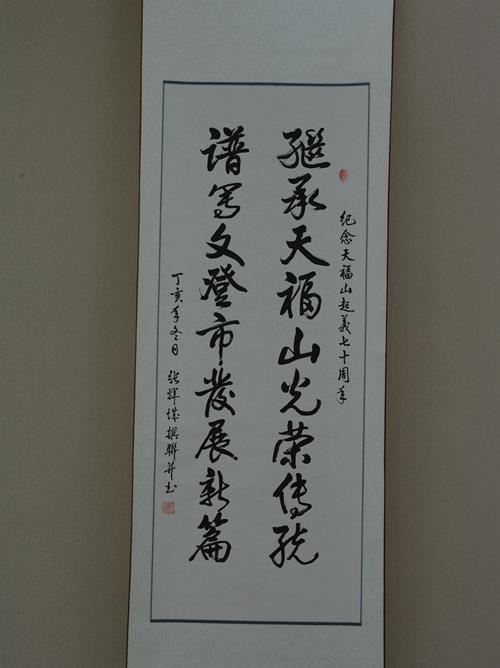 纪念天福山起義七十周年
継承天福山光荣传统
谱写文登市發展新篇
丁亥年冬日 张辉城撰聯并书